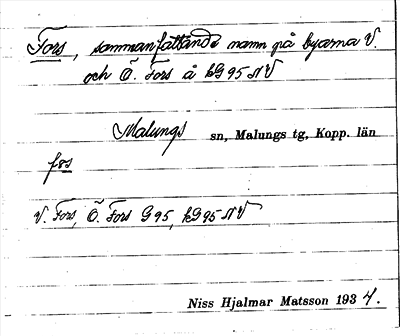 Fors, sammanfattande namn på byarna V.
och Ö. Fors å kG 95 NV
Malungs sn, Malungs tg, Kopp. län
fos
V. Fors, Ö. Fors G 95, kG 95 NV
Niss Hjalmar Matsson 1934.